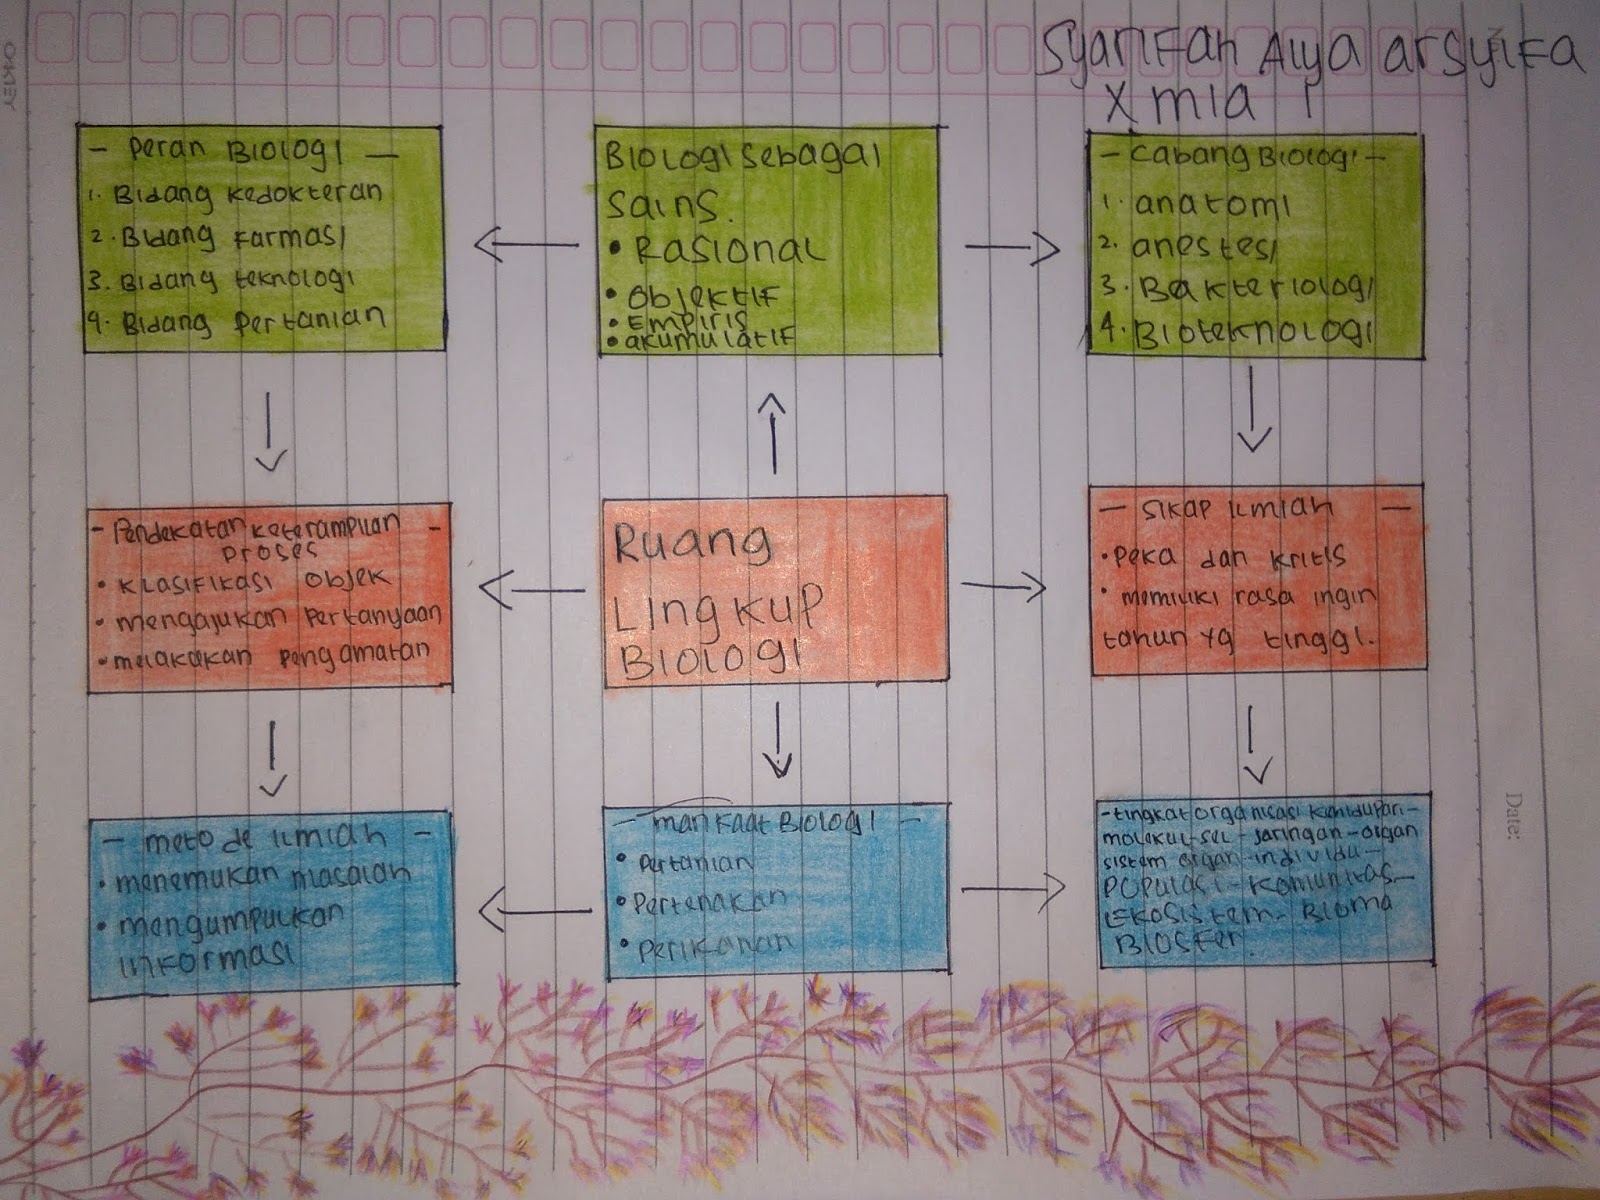 Syarifah Alya arsyifa
X mia 1
- Peran Biologi -
1. Bidang kedokteran
2. Bidang farmasi
3. Bidang teknologi
4. Bidang Pertanian
Biologi sebagai
sains.
• Rasional
• Objektif
• Empiris
• akumulatif
- Cabang Biologi -
1. anatomi
2. anestesi
3. Bakteriologi
4. Bioteknologi
- Pendekatan keterampilan -
proses
• Klasifikasi objek
• mengajukan Pertanyaan
• melakukan Pengamatan
Ruang
Lingkup
Biologi
- Sikap ilmiah -
• Peka dan kritis
• memiliki rasa ingin
tahun yg tinggi.
- metode ilmiah -
• menemukan masalah
• mengumpulkan
informasi
- manfaat Biologi -
• Pertanian
• Pertenakan
• Perikanan
- tingkat organisasi kehidupan -
molekul - sel - jaringan - organ
sistem organ - individu -
Populasi - komunitas -
Ekosistem - Bioma
Biosfer.
Date: